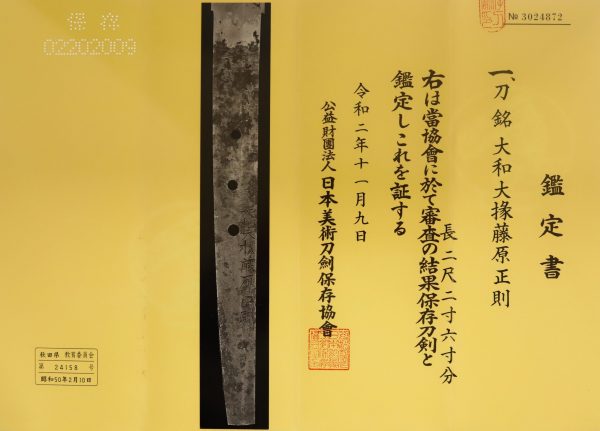 № 3024872
鑑定書
一、刀 銘 大和大掾藤原正則
長 二尺二寸六寸分
右は當協會に於て審査の結果保存刀剣と
鑑定しこれを証する
令和二年十一月九日
公益財團法人 日本美術刀劍保存協會
保存
02202009
秋田県 教育委員会
第 24158 号
昭和50年2月10日